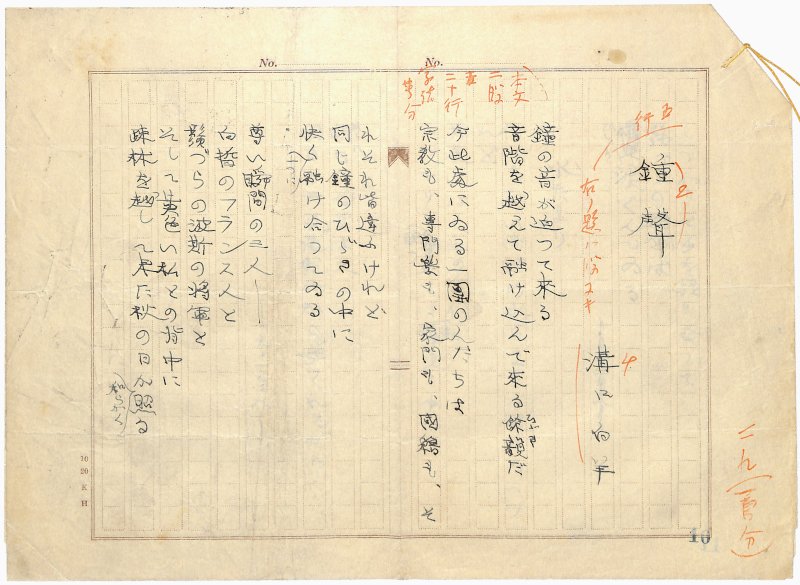 No.
No.
五行
鍾聲
溝口白羊
鐘の音が迫つて来る
音階を越えて融け込んで来る餘韻だ
ひびき
今此處にゐる一團の人たちは
宗教も、専門業も、家門も、國籍も、そ
れぞれ皆違ふけれど
同じ鐘のひびきの中に
快く融け合つてゐる
尊い瞬間の三人―
白晳のフランス人と
鬚づらの波斯の将軍と
そして黄色い私との背中に
疎林を越して来た秋の日が照る
和らかく
本文
二段
二十行
10 20 K H
10